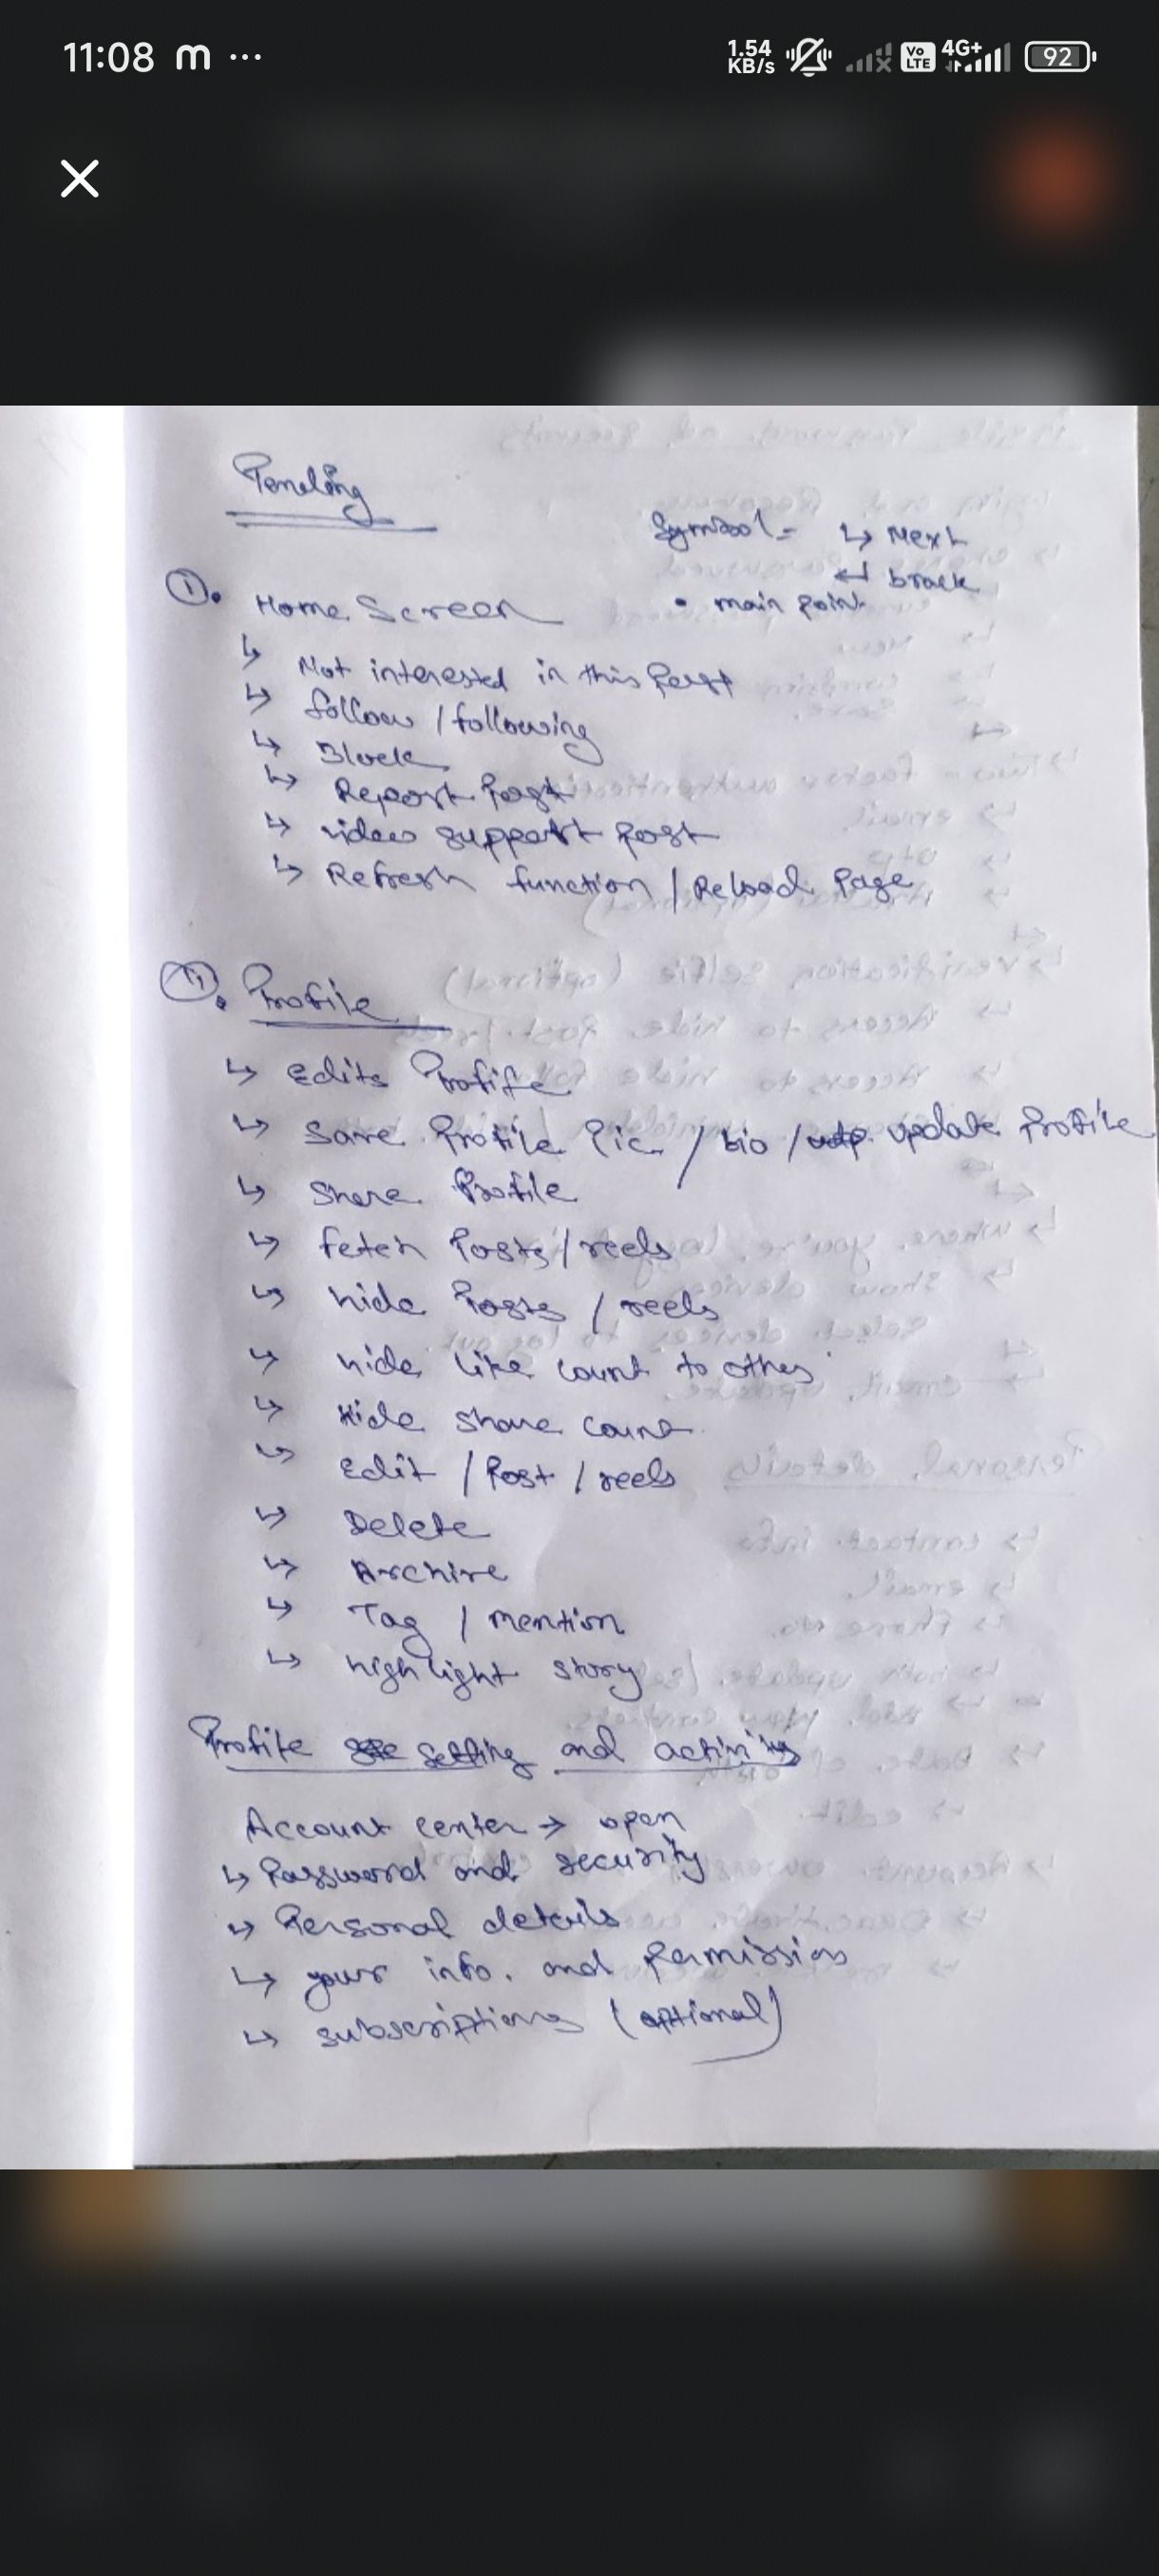 11:08 m ...
1.54 KB/s Vo LTE 4G+ 92
Pending
Symbol = ↳ Next
↵ back
• main point
①. Home Screen
↳ Not interested in this Post
↳ follow / following
↳ Block
↳ Report Post
↳ video support post
↳ Refresh function / Reload Page
⑪. Profile
↳ Edits Profile
↳ Save Profile Pic / bio / update Profile
↳ Share Profile
↳ fetch Posts / reels
↳ hide Posts / reels
↳ hide like count to other
↳ Hide share count
↳ Edit / Post / reels
↳ Delete
↳ Archive
↳ Tag / mention
↳ highlight story
Profile setting and activity
Account center → open
↳ Password and security
↳ Personal details
↳ your info. and Permission
↳ subscriptions (optional)